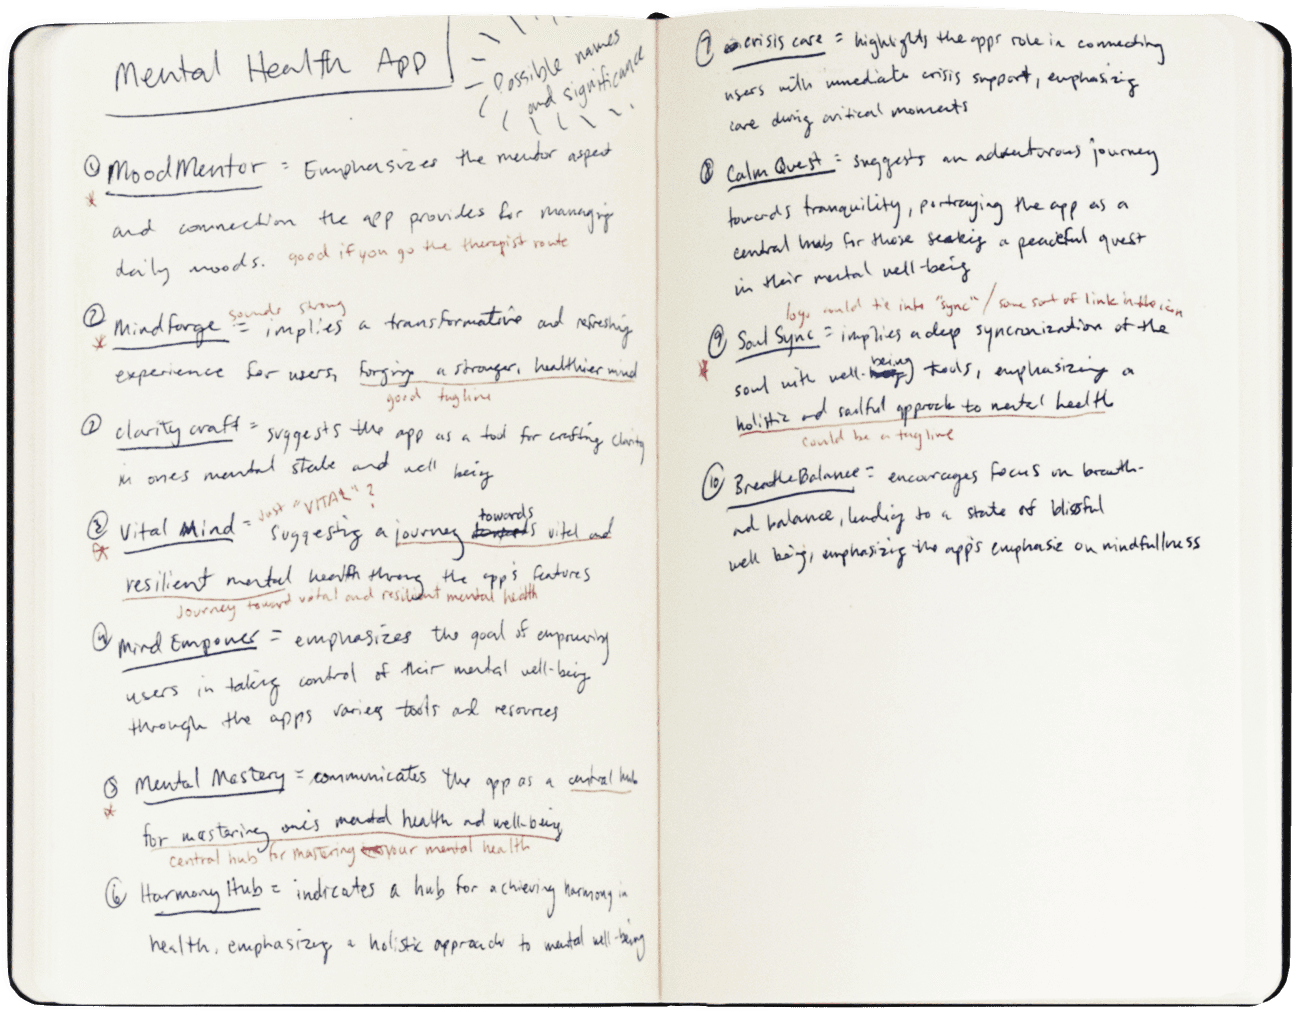 Mental Health App
Possible names
and significance
① MoodMentor = Emphasizes the mentor aspect
and connection the app provides for managing
daily moods. good if you go the therapist route
sounds strong
② Mindforge = implies a transformative and refreshing
experience for users, forging a stronger, healthier mind
good tagline
② clarity craft = suggests the app as a tool for crafting clarity
in ones mental state and well being
Just "VITAL"?
③ Vital Mind = Suggesting a journey towards vital and
resilient mental health through the app's features
Journey toward vital and resilient mental health
④ Mind Empower = emphasizes the goal of empowering
users in taking control of their mental well-being
through the apps varies tools and resources
⑤ Mental Mastery = communicates the app as a central hub
for mastering one's mental health and well-being
central hub for mastering your mental health
⑥ Harmony Hub = indicates a hub for achieving harmony in
health, emphasizing a holistic approach to mental well-being
⑦ crisis care = highlights the apps role in connecting
users with immediate crisis support, emphasizing
care during critical moments
⑧ Calm Quest = suggests an adventorous journey
towards tranquility, portraying the app as a
central hub for those seeking a peaceful quest
in their mental well-being
logo could tie into "sync" / some sort of link in the icon
⑨ Soul Sync = implies a deep syncronization of the
soul with well-being tools, emphasizing a
holistic and soulful approach to mental health
could be a tagline
⑩ BreatheBalance = encourages focus on breath-
and balance, leading to a state of blissful
well being, emphasizing the app's emphasis on mindfullness